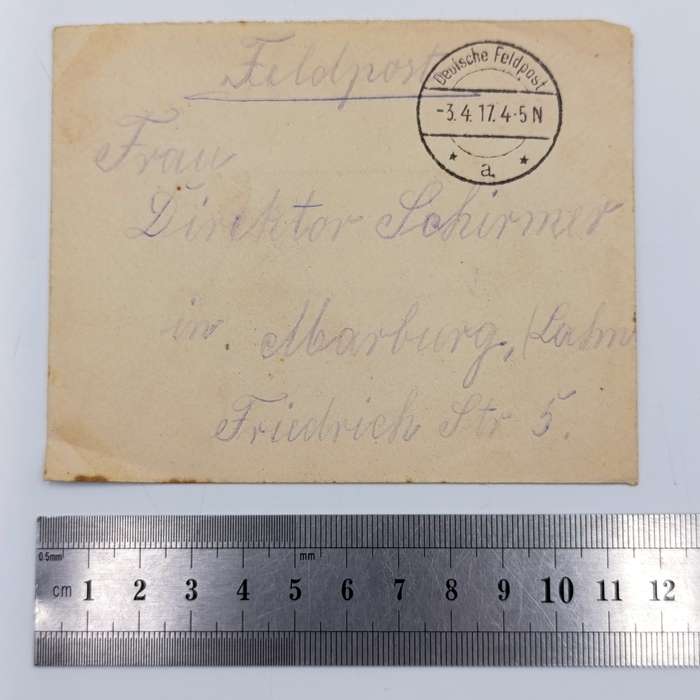 Feldpost
Deutsche Feldpost
-3.4.17.4-5 N
* a. *
Frau
Direktor Schirmer
in Marburg, (Lahn
Friedrich Str 5.
0.5mm mm
cm 1 2 3 4 5 6 7 8 9 10 11 12